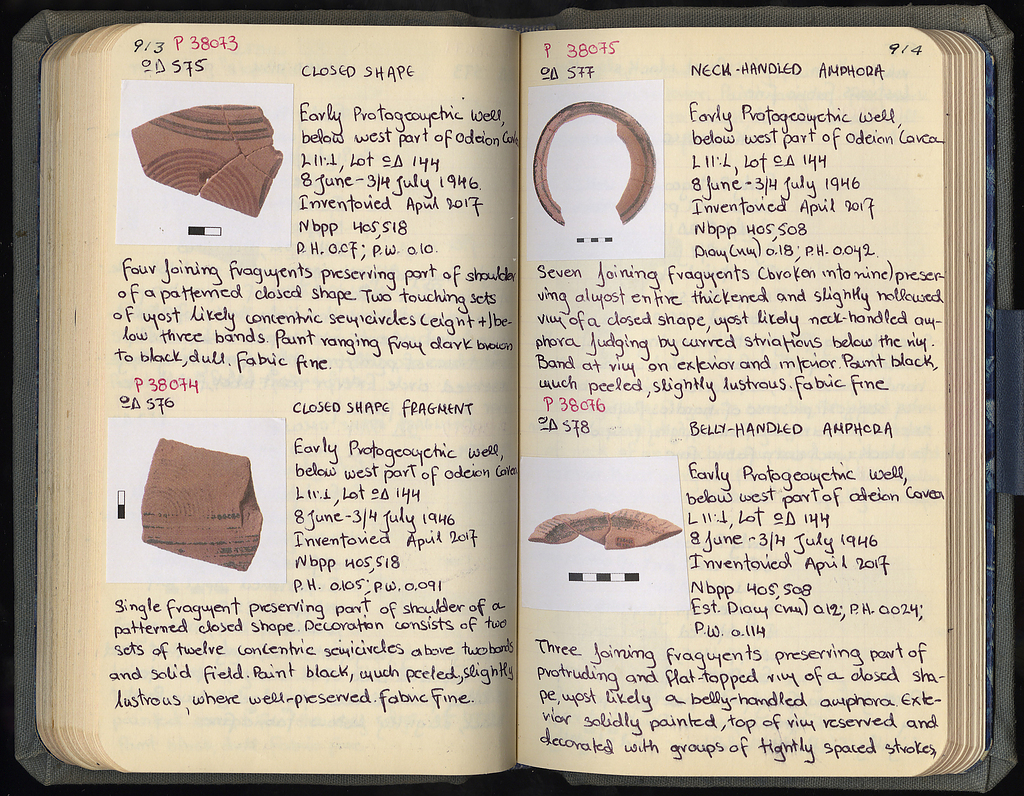 913 P 38073
ΩΔ 575
CLOSED SHAPE
Early Protogeometric well,
below west part of Odeion Cavea
L 11:1, Lot ΩΔ 144
8 June - 3/4 July 1946.
Inventoried April 2017
Nbpp 405,518
P.H. 0.07; P.W. 0.10.
Four joining fragments preserving part of shoulder
of a patterned closed shape. Two touching sets
of most likely concentric semicircles (eight +) be-
low three bands. Paint ranging from dark brown
to black, dull. Fabric fine.
P 38074
ΩΔ 576
CLOSED SHAPE FRAGMENT
Early Protogeometric well,
below west part of Odeion Cavea
L 11:1, Lot ΩΔ 144
8 June - 3/4 July 1946
Inventoried April 2017
Nbpp 405,518
P.H. 0.105; P.W. 0.091
Single fragment preserving part of shoulder of a
patterned closed shape. Decoration consists of two
sets of twelve concentric semicircles above two bands
and solid field. Paint black, much peeled, slightly
lustrous, where well-preserved. Fabric fine.
P 38075
914
ΩΔ 577
NECK-HANDLED AMPHORA
Early Protogeometric well,
below west part of Odeion Cavea
L 11:1, Lot ΩΔ 144
8 June - 3/4 July 1946
Inventoried April 2017
Nbpp 405,508
Diam (rim) 0.18; P.H. 0.042.
Seven joining fragments (broken into nine) preser-
ving almost entire thickened and slightly hollowed
rim of a closed shape, most likely neck-handled am-
phora judging by curved striations below the rim.
Band at rim on exterior and interior. Paint black,
much peeled, slightly lustrous. Fabric fine
P 38076
ΩΔ 578
BELLY-HANDLED AMPHORA
Early Protogeometric well,
below west part of Odeion Cavea
L 11:1, Lot ΩΔ 144
8 June - 3/4 July 1946
Inventoried April 2017
Nbpp 405,508
Est. Diam (rim) 0.12; P.H. 0.024;
P.W. 0.114
Three joining fragments preserving part of
protruding and flat-topped rim of a closed sha-
pe, most likely a belly-handled amphora. Exte-
rior solidly painted, top of rim reserved and
decorated with groups of tightly spaced strokes,